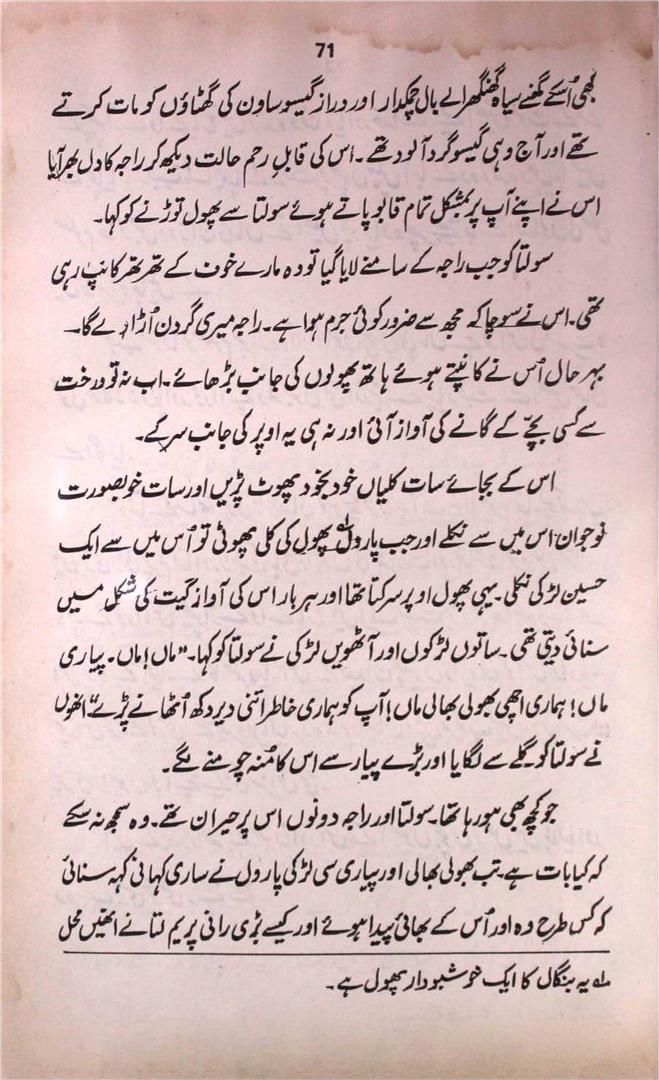 71
کبھی اُسکے گھنے سیاہ گھنگھرالے بال چمکدار اور دراز گیسو ساون کی گھٹاؤں کو مات کرتے
تھے اور آج وہی گیسو گرد آلود تھے۔ اس کی قابلِ رحم حالت دیکھ کر راجہ کا دل بھر آیا
اس نے اپنے آپ پر بمشکل تمام قابو پاتے ہوئے سولتا سے پھول توڑنے کو کہا۔
سولتا کو جب راجہ کے سامنے لایا گیا تو وہ مارے خوف کے تھر تھر کانپ رہی
تھی۔ اس نے سوچا کہ مجھ سے ضرور کوئی جرم ہوا ہے۔ راجہ میری گردن اُڑا دے گا۔
بہر حال اُس نے کانپتے ہوئے ہاتھ پھولوں کی جانب بڑھائے۔ اب نہ تو درخت
سے کسی بچّے کے گانے کی آواز آئی اور نہ ہی یہ اوپر کی جانب سرکے۔
اس کے بجائے سات کلیاں خود بخود پھوٹ پڑیں اور سات خوبصورت
نوجوان اس میں سے نکلے اور جب پارول؎۱ پھول کی کلی پھوٹی تو اُس میں سے ایک
حسین لڑکی نکلی۔ یہی پھول اوپر سرکتا تھا اور ہر بار اس کی آواز گیت کی شکل میں
سنائی دیتی تھی۔ ساتوں لڑکوں اور آٹھویں لڑکی نے سولتا کو کہا۔ "ماں! ماں۔ پیاری
ماں! ہماری اچھی بھولی بھالی ماں! آپ کو ہماری خاطر اتنی دیر دکھ اُٹھانے پڑے" انھوں
نے سولتا کو گلے سے لگایا اور بڑے پیار سے اس کا مُنہ چومنے لگے۔
جو کچھ بھی ہو رہا تھا۔ سولتا اور راجہ دونوں اس پر حیران تھے۔ وہ سمجھ نہ سکے
کہ کیا بات ہے۔ تب بھولی بھالی اور پیاری سی لڑکی پارول نے ساری کہانی کہہ سنائی
کہ کس طرح وہ اور اُس کے بھائی پیدا ہوئے اور کیسے بڑی رانی پریم لتا نے انھیں محل
؎۱ یہ بنگال کا ایک خوشبودار پھول ہے۔